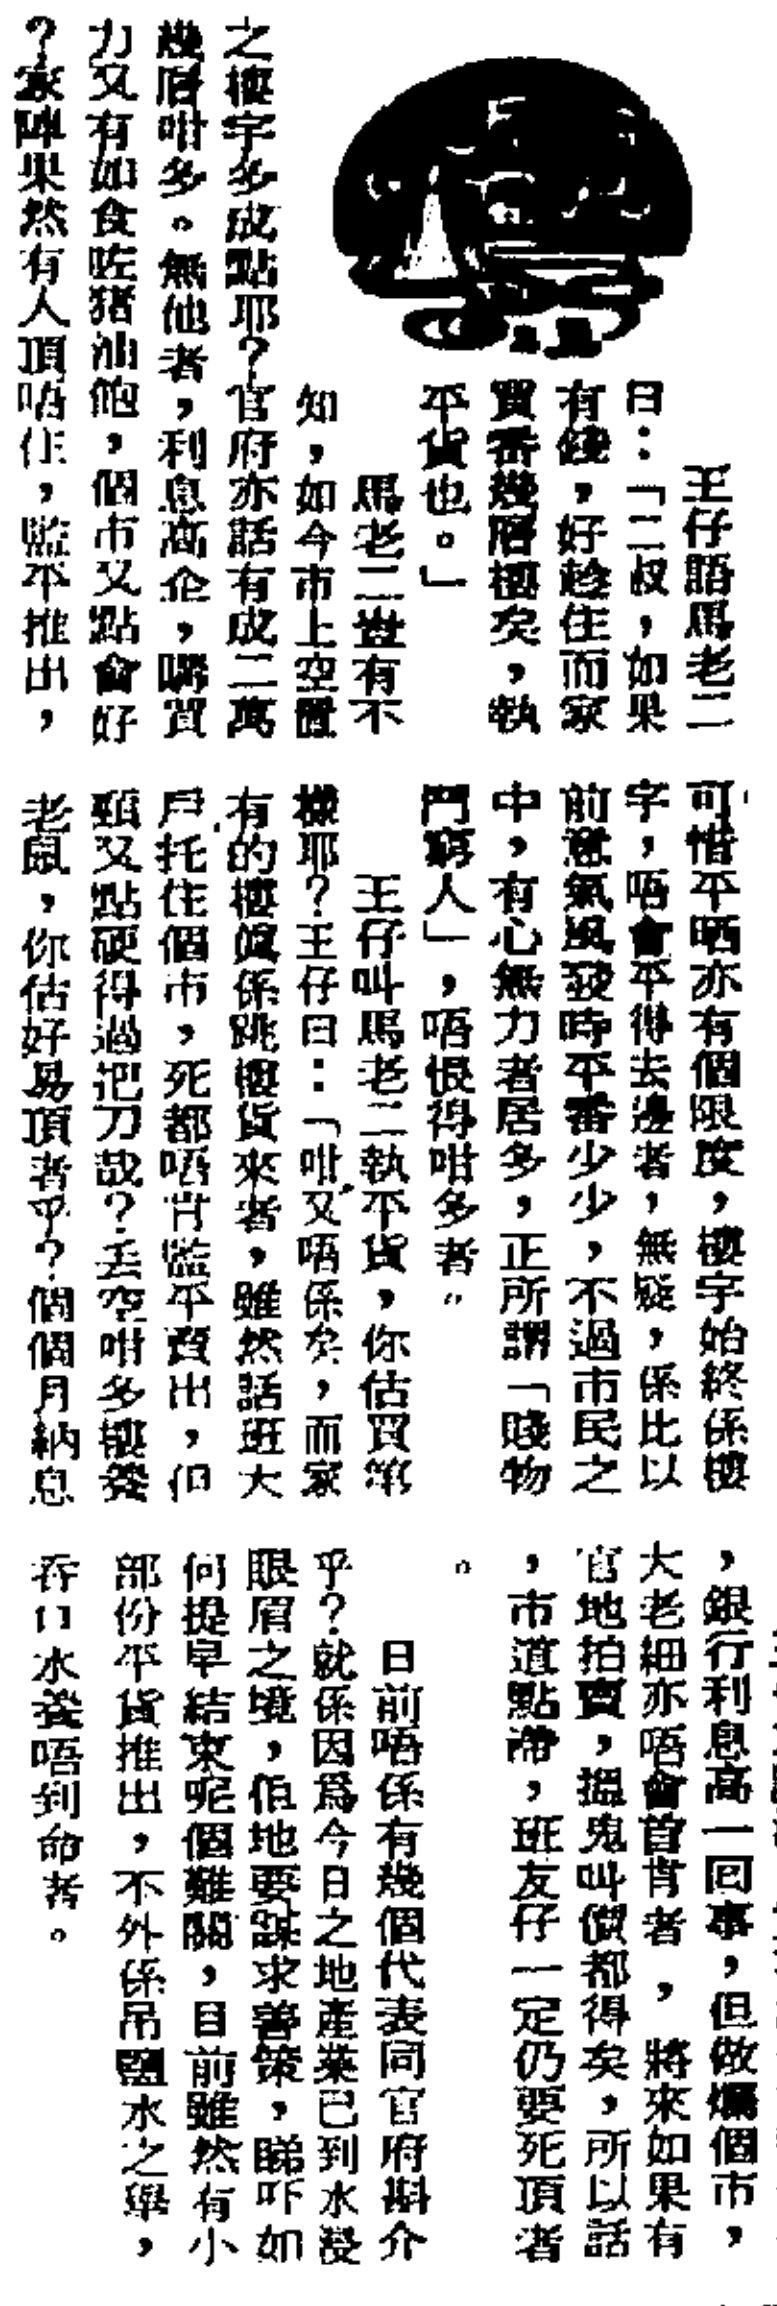 王仔語馬老二
曰：「二叔，如果
有錢，好趁住而家
買番幾層樓矣，執
平貨也。」
馬老二豈有不
知，如今市上空置
之樓宇多成點耶？官府亦話有成二萬
幾層咁多。無他者，利息高企，購買
力又有如食咗猪油飽，個市又點會好
？家陣果然有人頂唔住，監平推出，
可惜平晒亦有個限度，樓宇始終係樓
宇，唔會平得去邊者，無疑，係比以
前意氣風發時平番少少，不過市民之
中，有心無力者居多，正所謂「賤物
鬥窮人」，唔恨得咁多者。
王仔叫馬老二執平貨，你估買第
樣耶？王仔曰：「咁又唔係矣，而家
有的樓眞係跳樓貨來者，雖然話班大
戶托住個市，死都唔肯監平賣出，但
頸又點硬得過把刀哉？丢空咁多樓養
老鼠，你估好易頂者乎？個個月納息
，銀行利息高一回事，但做爛個市，
大老細亦唔會首肯者，將來如果有
官地拍賣，搵鬼叫價都得矣，所以話
，市道點滯，班友仔一定仍要死頂者
。
日前唔係有幾個代表同官府斟介
乎？就係因爲今日之地產業已到水浸
眼眉之境，佢地要謀求善策，睇吓如
何提早結束呢個難關，目前雖然有小
部份平貨推出，不外係吊鹽水之舉，
吞口水養唔到命者。